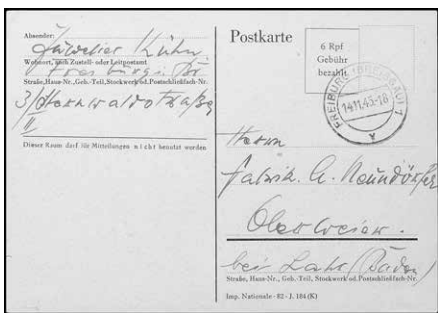 Absender:
Juwelier Kühn
Wohnort, auch Zustell- oder Leitpostamt
Freiburg i. Br
Straße, Haus-Nr., Geb.-Teil, Stockwerk od. Postschließfach-Nr.
3/
II
Dieser Raum darf für Mitteilungen nicht benutzt werden
Postkarte
6 Rpf
Gebühr
bezahlt
FREIBURG (BREISGAU) 1
14.11.45-18
Herrn
Fabrik. A. Neundörfer
Oberweier.
bei Lahr (Baden)
Straße, Haus-Nr., Geb.-Teil, Stockwerk od. Postschließfach-Nr.
Imp. Nationale - 82 - J. 184 (K)